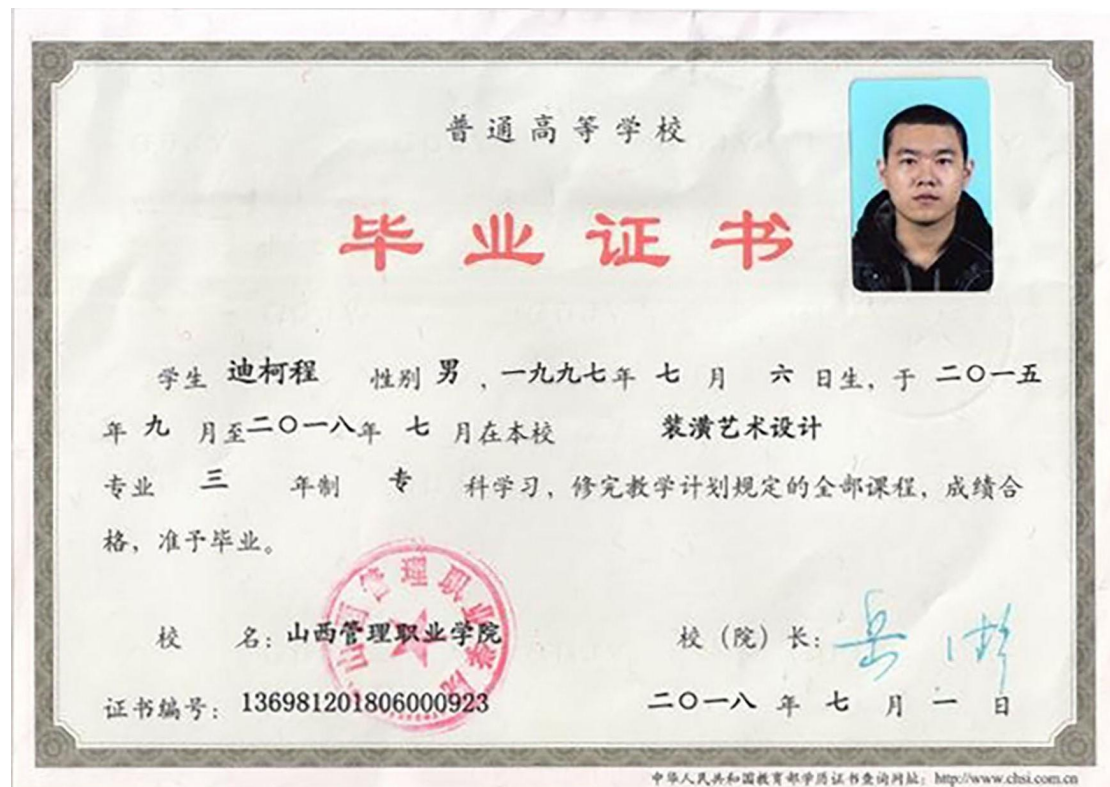 普通高等学校
毕业证书
学生 迪柯程 性别 男 ，一九九七年 七 月 六 日生，于 二〇一五
年 九 月至二〇一八年 七 月在本校 装潢艺术设计
专业 三 年制 专 科学习，修完教学计划规定的全部课程，成绩合
格，准予毕业。
山西管理职业学院
校 名：山西管理职业学院 校（院）长：
证书编号：136981201806000923 二〇一八 年 七 月 一 日
中华人民共和国教育部学历证书查询网址：http://www.chsi.com.cn